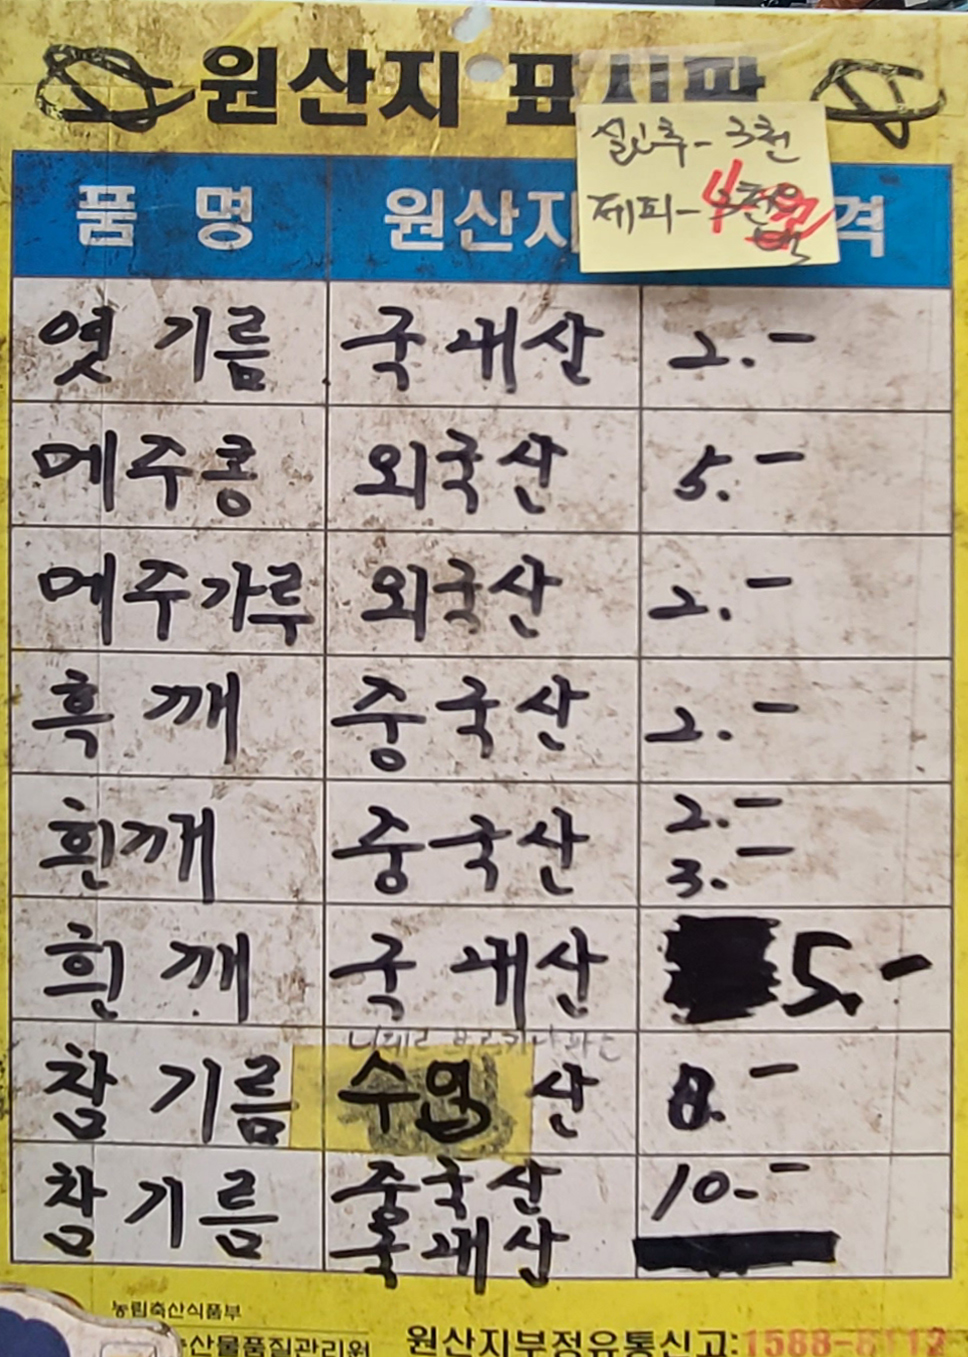 원산지 표시판
실후추-3천
제피-4천
품 명 원산지 격
엿 기름 국내산 2.-
메주콩 외국산 5.-
메주가루 외국산 2.-
흑 깨 중국산 2.-
흰깨 중국산 2.-
3.-
흰 깨 국내산 5.-
참 기름 수입산 8.-
참기름 중국산 10.-
국내산
농림축산식품부
산물품질관리원 원산지부정유통신고:1588-8112